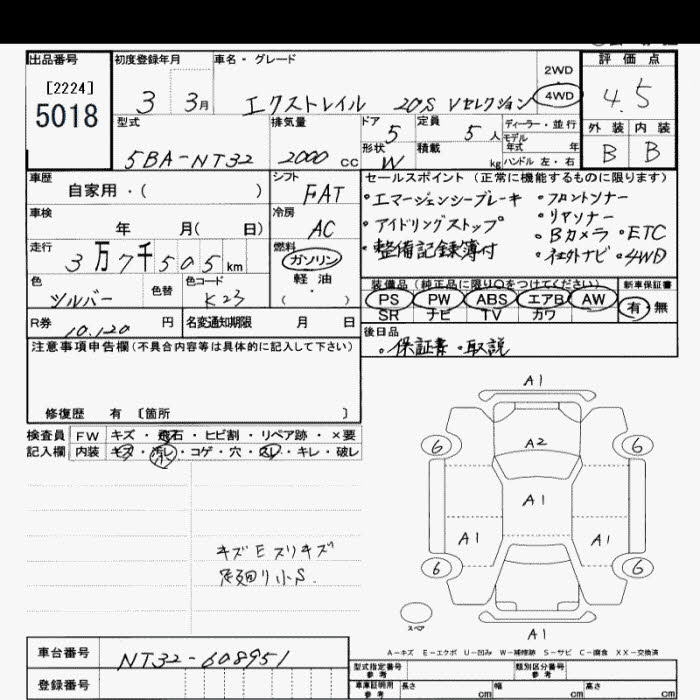 出品番号 初度登録年月 車名・グレード 2WD 評価点
[2224] 3 3月 エクストレイル 20S Vセレクション 4WD 4.5
5018 型式 排気量 ドア 5 定員 5人 ディーラー・並行 外装 内装
モデル年式 年
5BA-NT32 2000cc 形状 W 積載 kg ハンドル 左・右 B B
車歴 シフト セールスポイント (正常に機能するものに限ります)
自家用・( ) FAT ・エマージェンシーブレーキ ・フロントソナー
車検 冷房 ・アイドリングストップ ・リヤソナー
年 月( 日) AC ・Bカメラ ・ETC
走行 燃料 ・整備記録簿付 ・社外ナビ ・4WD
3万7千505km ガソリン
色 色替 色コード 軽油 装備品 (純正品に限り○をつけてください) 新車保証書
シルバー K23 ・( ) PS PW ABS エアB AW 有・無
SR ナビ TV カワ
R券 10,120 円 名変通知期限 月 日 後日品
注意事項申告欄(不具合内容等は具体的に記入して下さい) ・保証書 ・取説
修復歴 有 〔箇所 〕
検査員 FW キズ・飛石・ヒビ割・リペア跡・×要
記入欄 内装 キズ・汚レ・コゲ・穴・スレ・キレ・破レ
A1
6 A2 6
A1
A1 A1
6 6
キズE スリキズ
足廻り小S.
スペア
A1
A-キズ E-エクボ U-凹み W-補修跡 S-サビ C-腐食 XX-交換済
車台番号 NT32-608951 型式指定番号 参考 類別区分番号 参考
登録番号 車庫証明用 参考 長さ cm 幅 cm 高さ cm